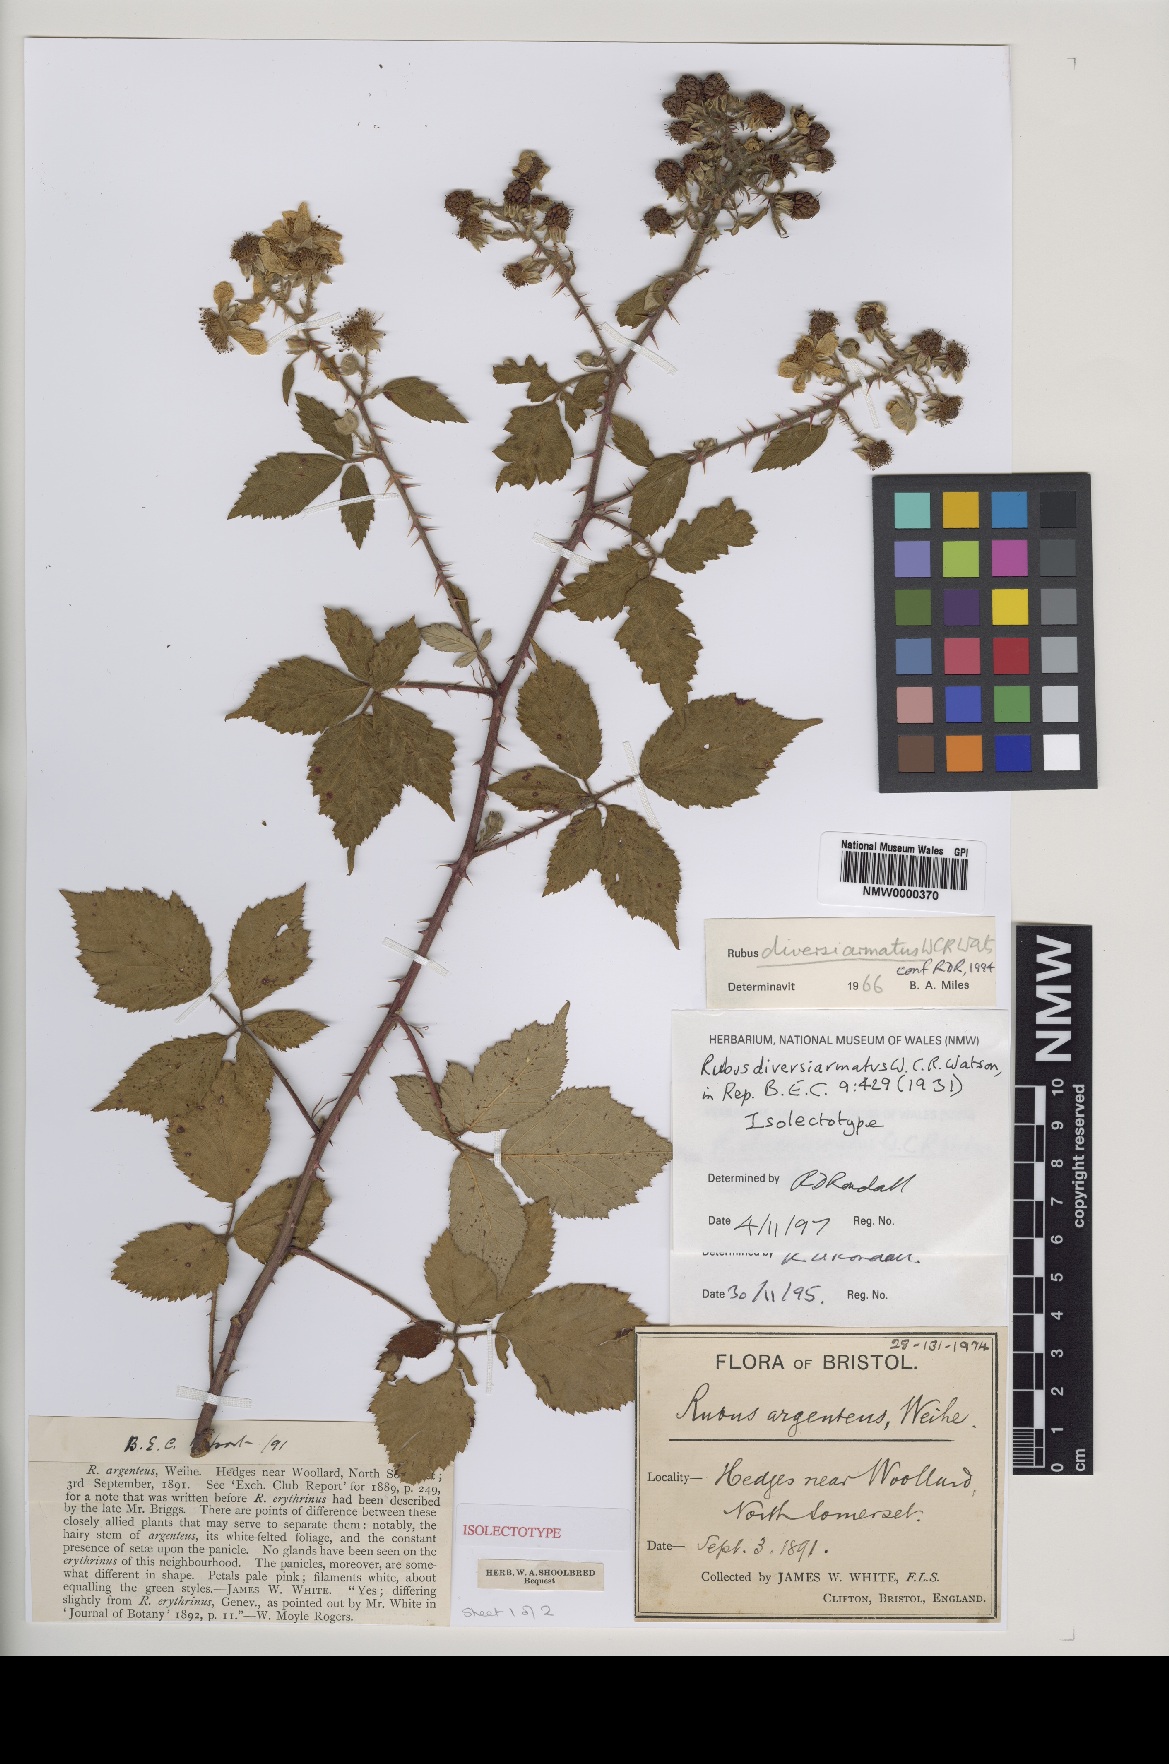 National Museum Wales GPI
NMW0000370
Rubus diversiarmatus W.C.R. Wats
conf RDR, 1994
Determinavit 1966 B. A. Miles
HERBARIUM, NATIONAL MUSEUM OF WALES (NMW)
Rubus diversiarmatus W. C. R. Watson,
in Rep. B. E. C. 9:429 (1931)
Isolectotype
Determined by RDRandall
Date 4/11/97 Reg. No.
Determined by R. D. Randall.
Date 30/11/95. Reg. No.
NMW
0 1 2 3 4 5 6 7 8 9 10
cm
copyright reserved
28-131-1974
FLORA OF BRISTOL.
Rubus argenteus, Weihe.
Locality— Hedges near Woollard,
North Somerset.
Date— Sept. 3. 1891.
Collected by JAMES W. WHITE, F.L.S.
CLIFTON, BRISTOL, ENGLAND.
B. E. C. /91
R. argenteus, Weihe. Hedges near Woollard, North
3rd September, 1891. See 'Exch. Club Report' for 1889, p. 249,
for a note that was written before R. erythrinus had been described
by the late Mr. Briggs. There are points of difference between these
closely allied plants that may serve to separate them: notably, the
hairy stem of argenteus, its white-felted foliage, and the constant
presence of setæ upon the panicle. No glands have been seen on the
erythrinus of this neighbourhood. The panicles, moreover, are some-
what different in shape. Petals pale pink; filaments white, about
equalling the green styles.—JAMES W. WHITE. "Yes; differing
slightly from R. erythrinus, Genev., as pointed out by Mr. White in
'Journal of Botany' 1892, p. 11."—W. Moyle Rogers.
ISOLECTOTYPE
HERB. W. A. SHOOLBRED
Bequest
Sheet 1 of 2